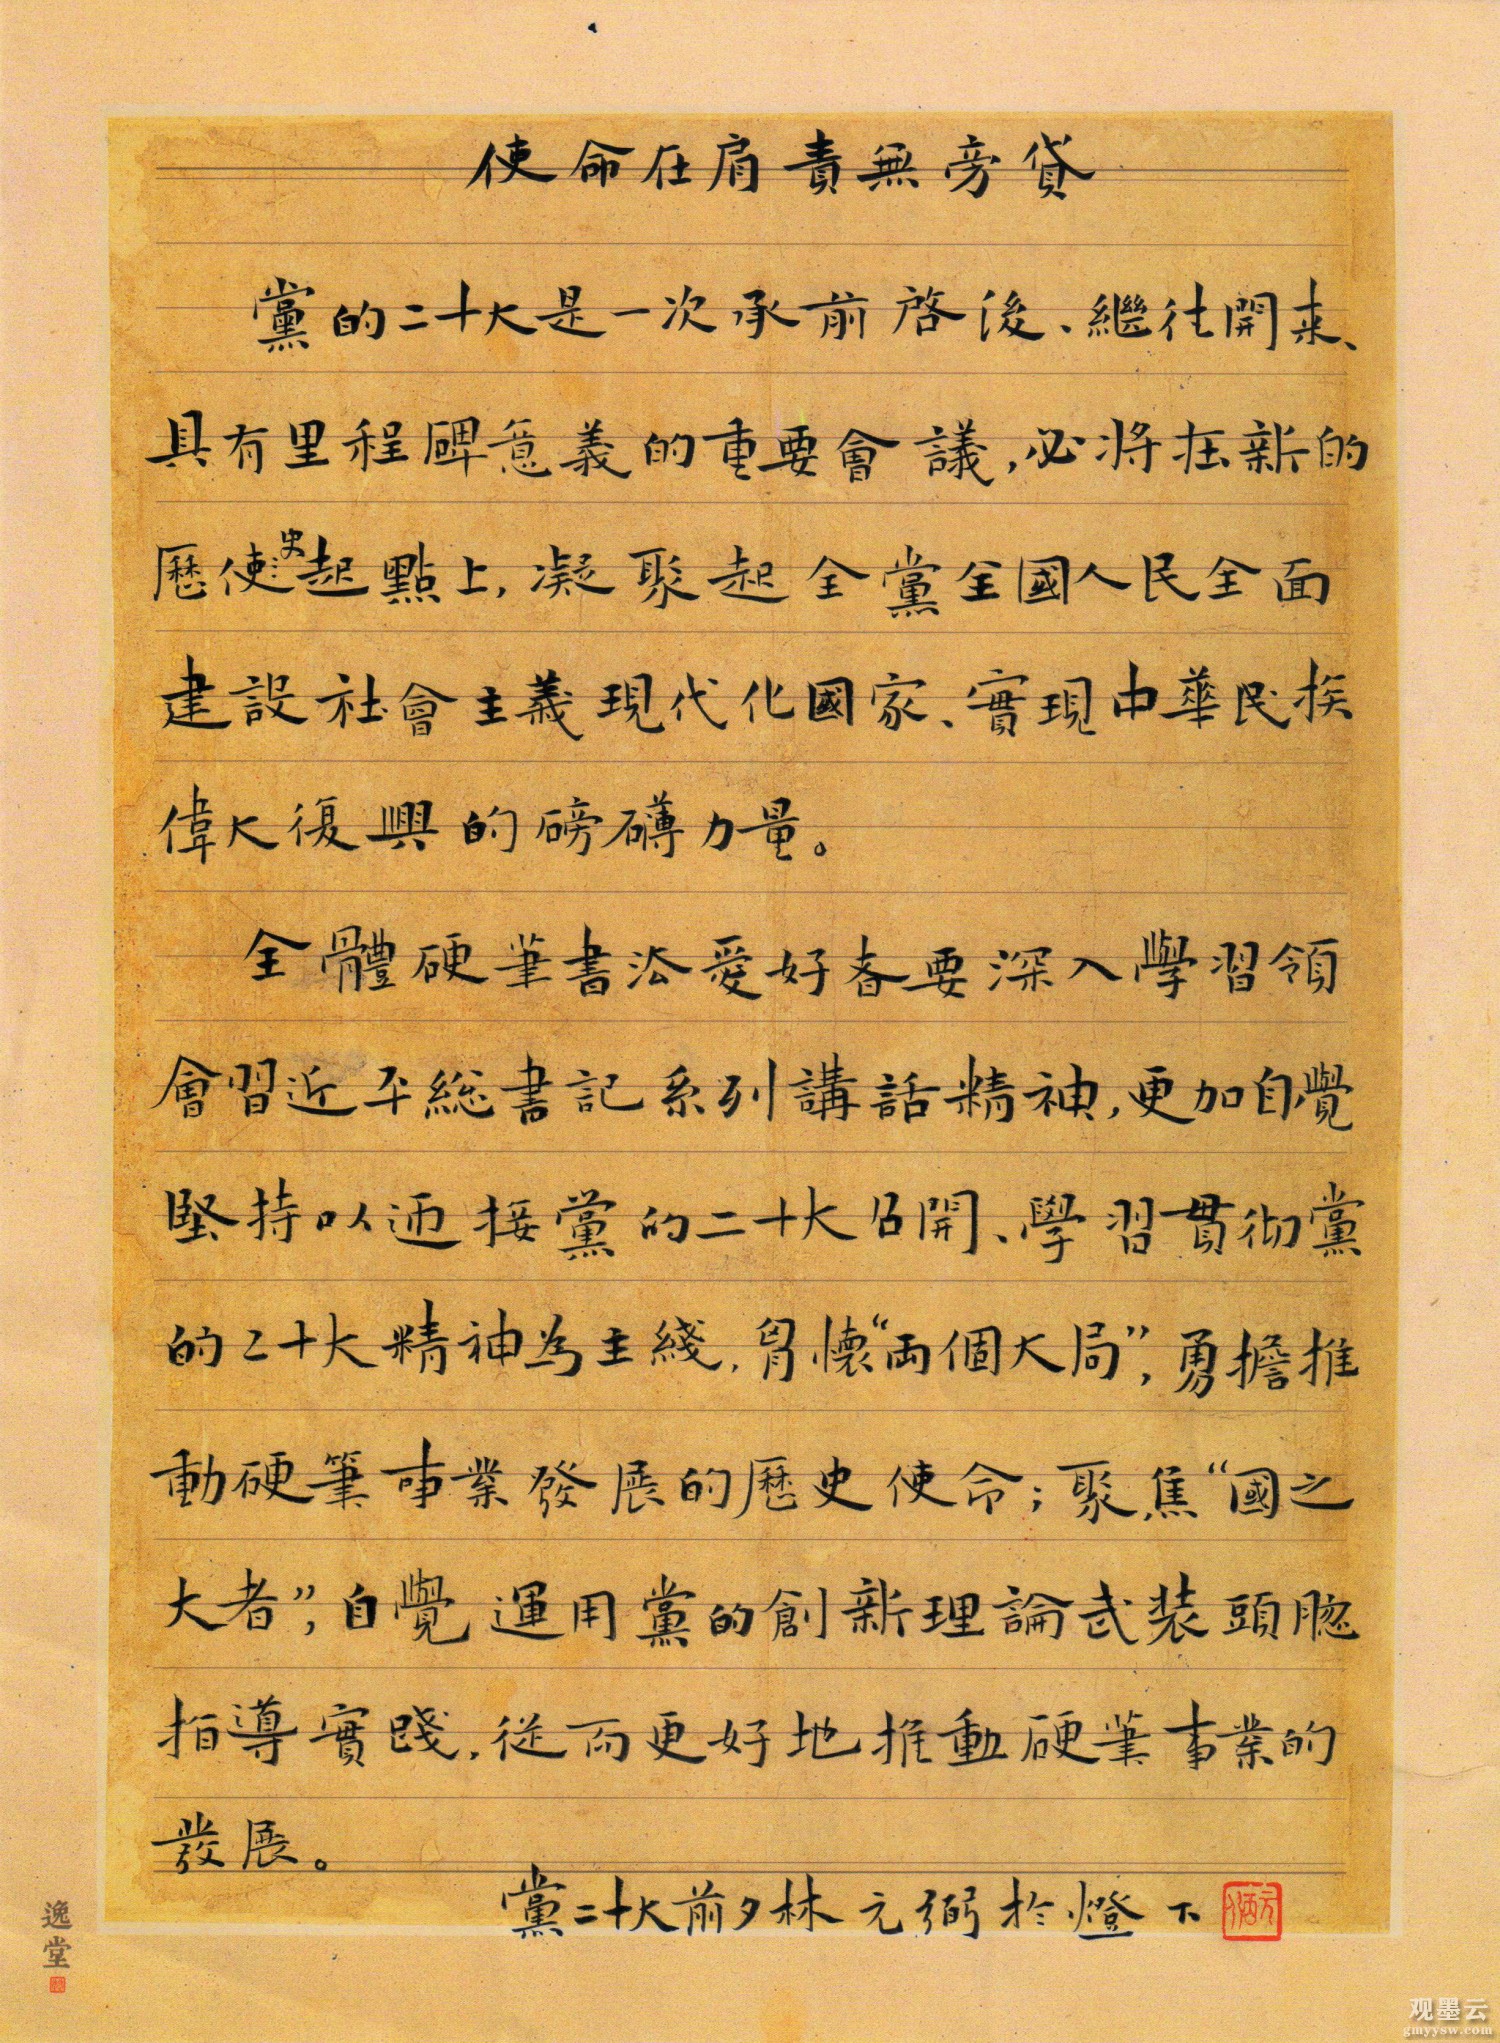 使命在肩責無旁貸
黨的二十大是一次承前啓後、繼往開来、
具有里程碑意義的重要會議,必將在新的
歷使史起點上,凝聚起全黨全國人民全面
建設社會主義現代化國家、實現中華民族
偉大復興的磅礴力量。
全體硬筆書法愛好者要深入學習領
會習近平総書記系列講話精神,更加自覺
堅持以迊接黨的二十大召開、學習貫彻黨
的二十大精神為主綫,胷懷“両個大局”,勇擔推
動硬筆事業發展的歷史使命;聚焦“國之
大者”,自覺運用黨的創新理論武装頭腦
指導實踐,從而更好地推動硬筆事業的
發展。
黨二十大前夕林元弼於燈下
逸堂
观墨云
gmyysw.com